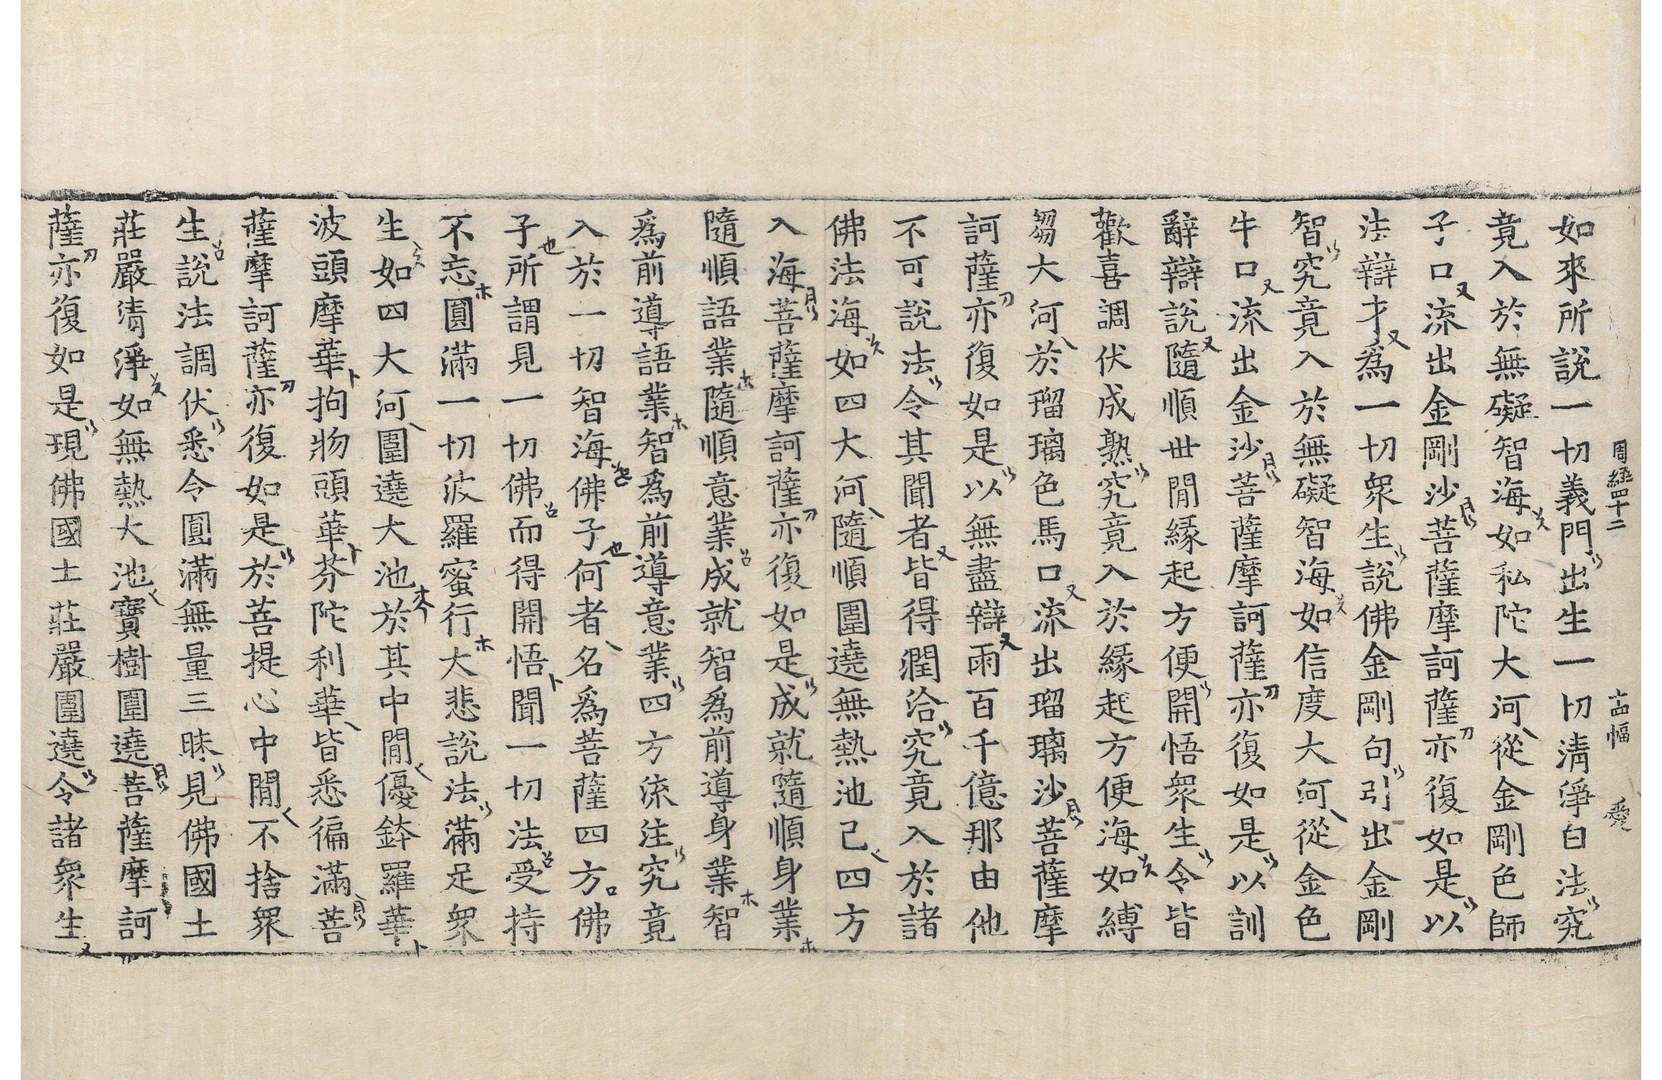 周經四十二
十四幅
如來所說一切義門出生一切清淨白法究
竟入於無礙智海如私陀大河從金剛色師
子口流出金剛沙菩薩摩訶薩亦復如是以
法辯才爲一切衆生說佛金剛句引出金剛
智究竟入於無礙智海如信度大河從金色
牛口流出金沙菩薩摩訶薩亦復如是以訓
辭辯說隨順世閒緣起方便開悟衆生令皆
歡喜調伏成熟究竟入於緣起方便海如縛
芻大河於瑠璃色馬口流出瑠璃沙菩薩摩
訶薩亦復如是以無盡辯雨百千億那由他
不可說法令其聞者皆得潤洽究竟入於諸
佛法海如四大河隨順圍遶無熱池已四方
入海菩薩摩訶薩亦復如是成就隨順身業
隨順語業隨順意業成就智爲前導身業智
爲前導語業智爲前導意業四方流注究竟
入於一切智海佛子何者名爲菩薩四方佛
子所謂見一切佛而得開悟聞一切法受持
不忘圓滿一切波羅蜜行大悲說法滿足衆
生如四大河圍遶大池於其中閒優鉢羅華
波頭摩華拘物頭華芬陀利華皆悉徧滿菩
薩摩訶薩亦復如是於菩提心中閒不捨衆
生說法調伏悉令圓滿無量三昧見佛國土
莊嚴清淨如無熱大池寶樹圍遶菩薩摩訶
薩亦復如是現佛國土莊嚴圍遶令諸衆生